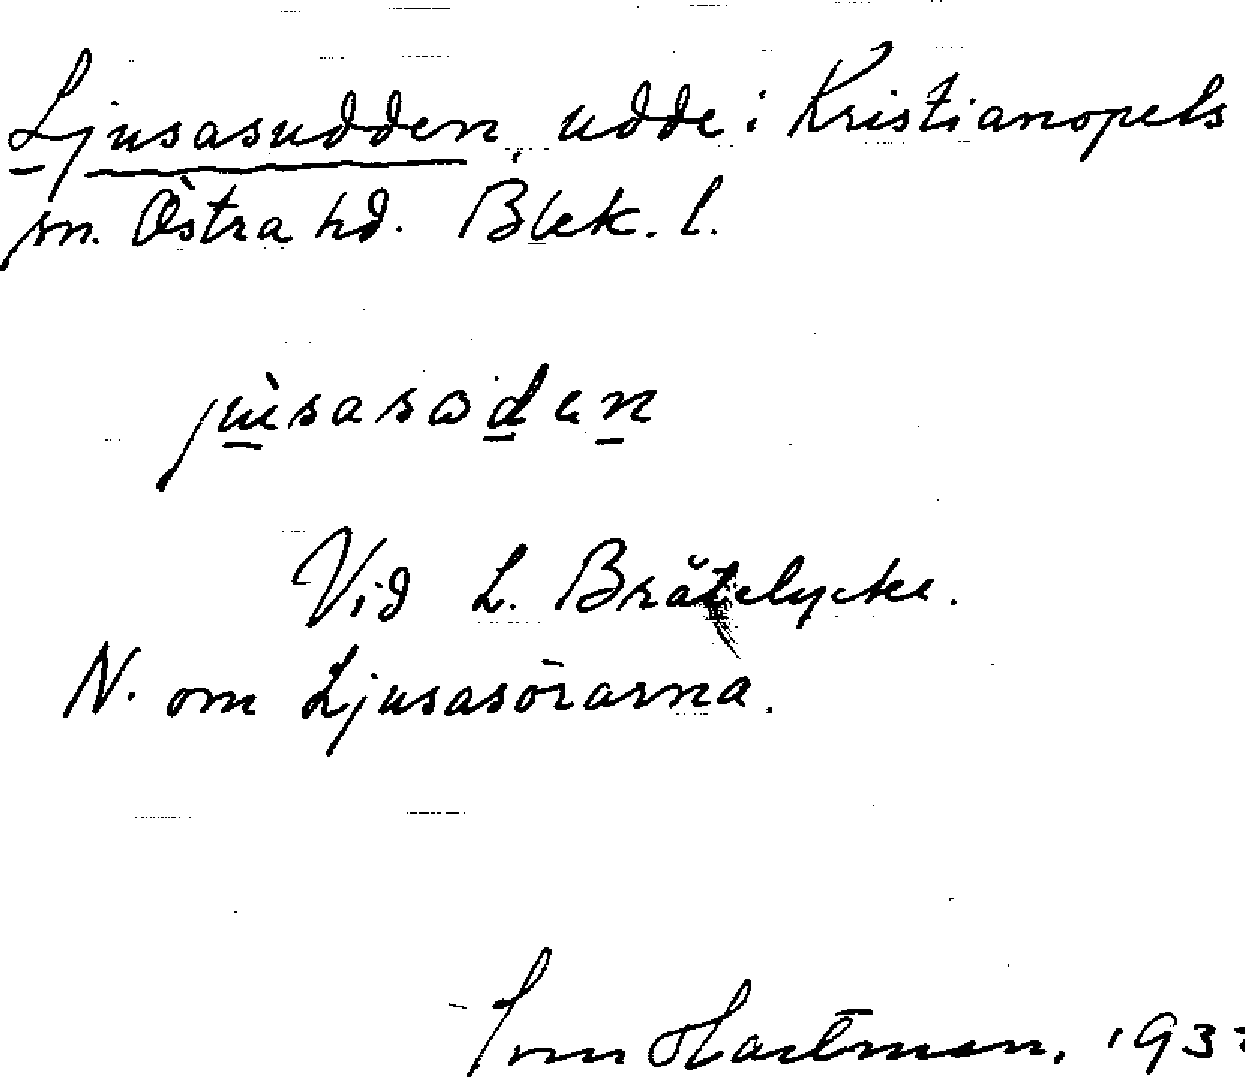 Ljusasudden, udde i Kristianopels
sn. Östra hd. Blek. l.
Vid L. Brätelycke.
N. om Ljusasörarna.
Hartman, 193